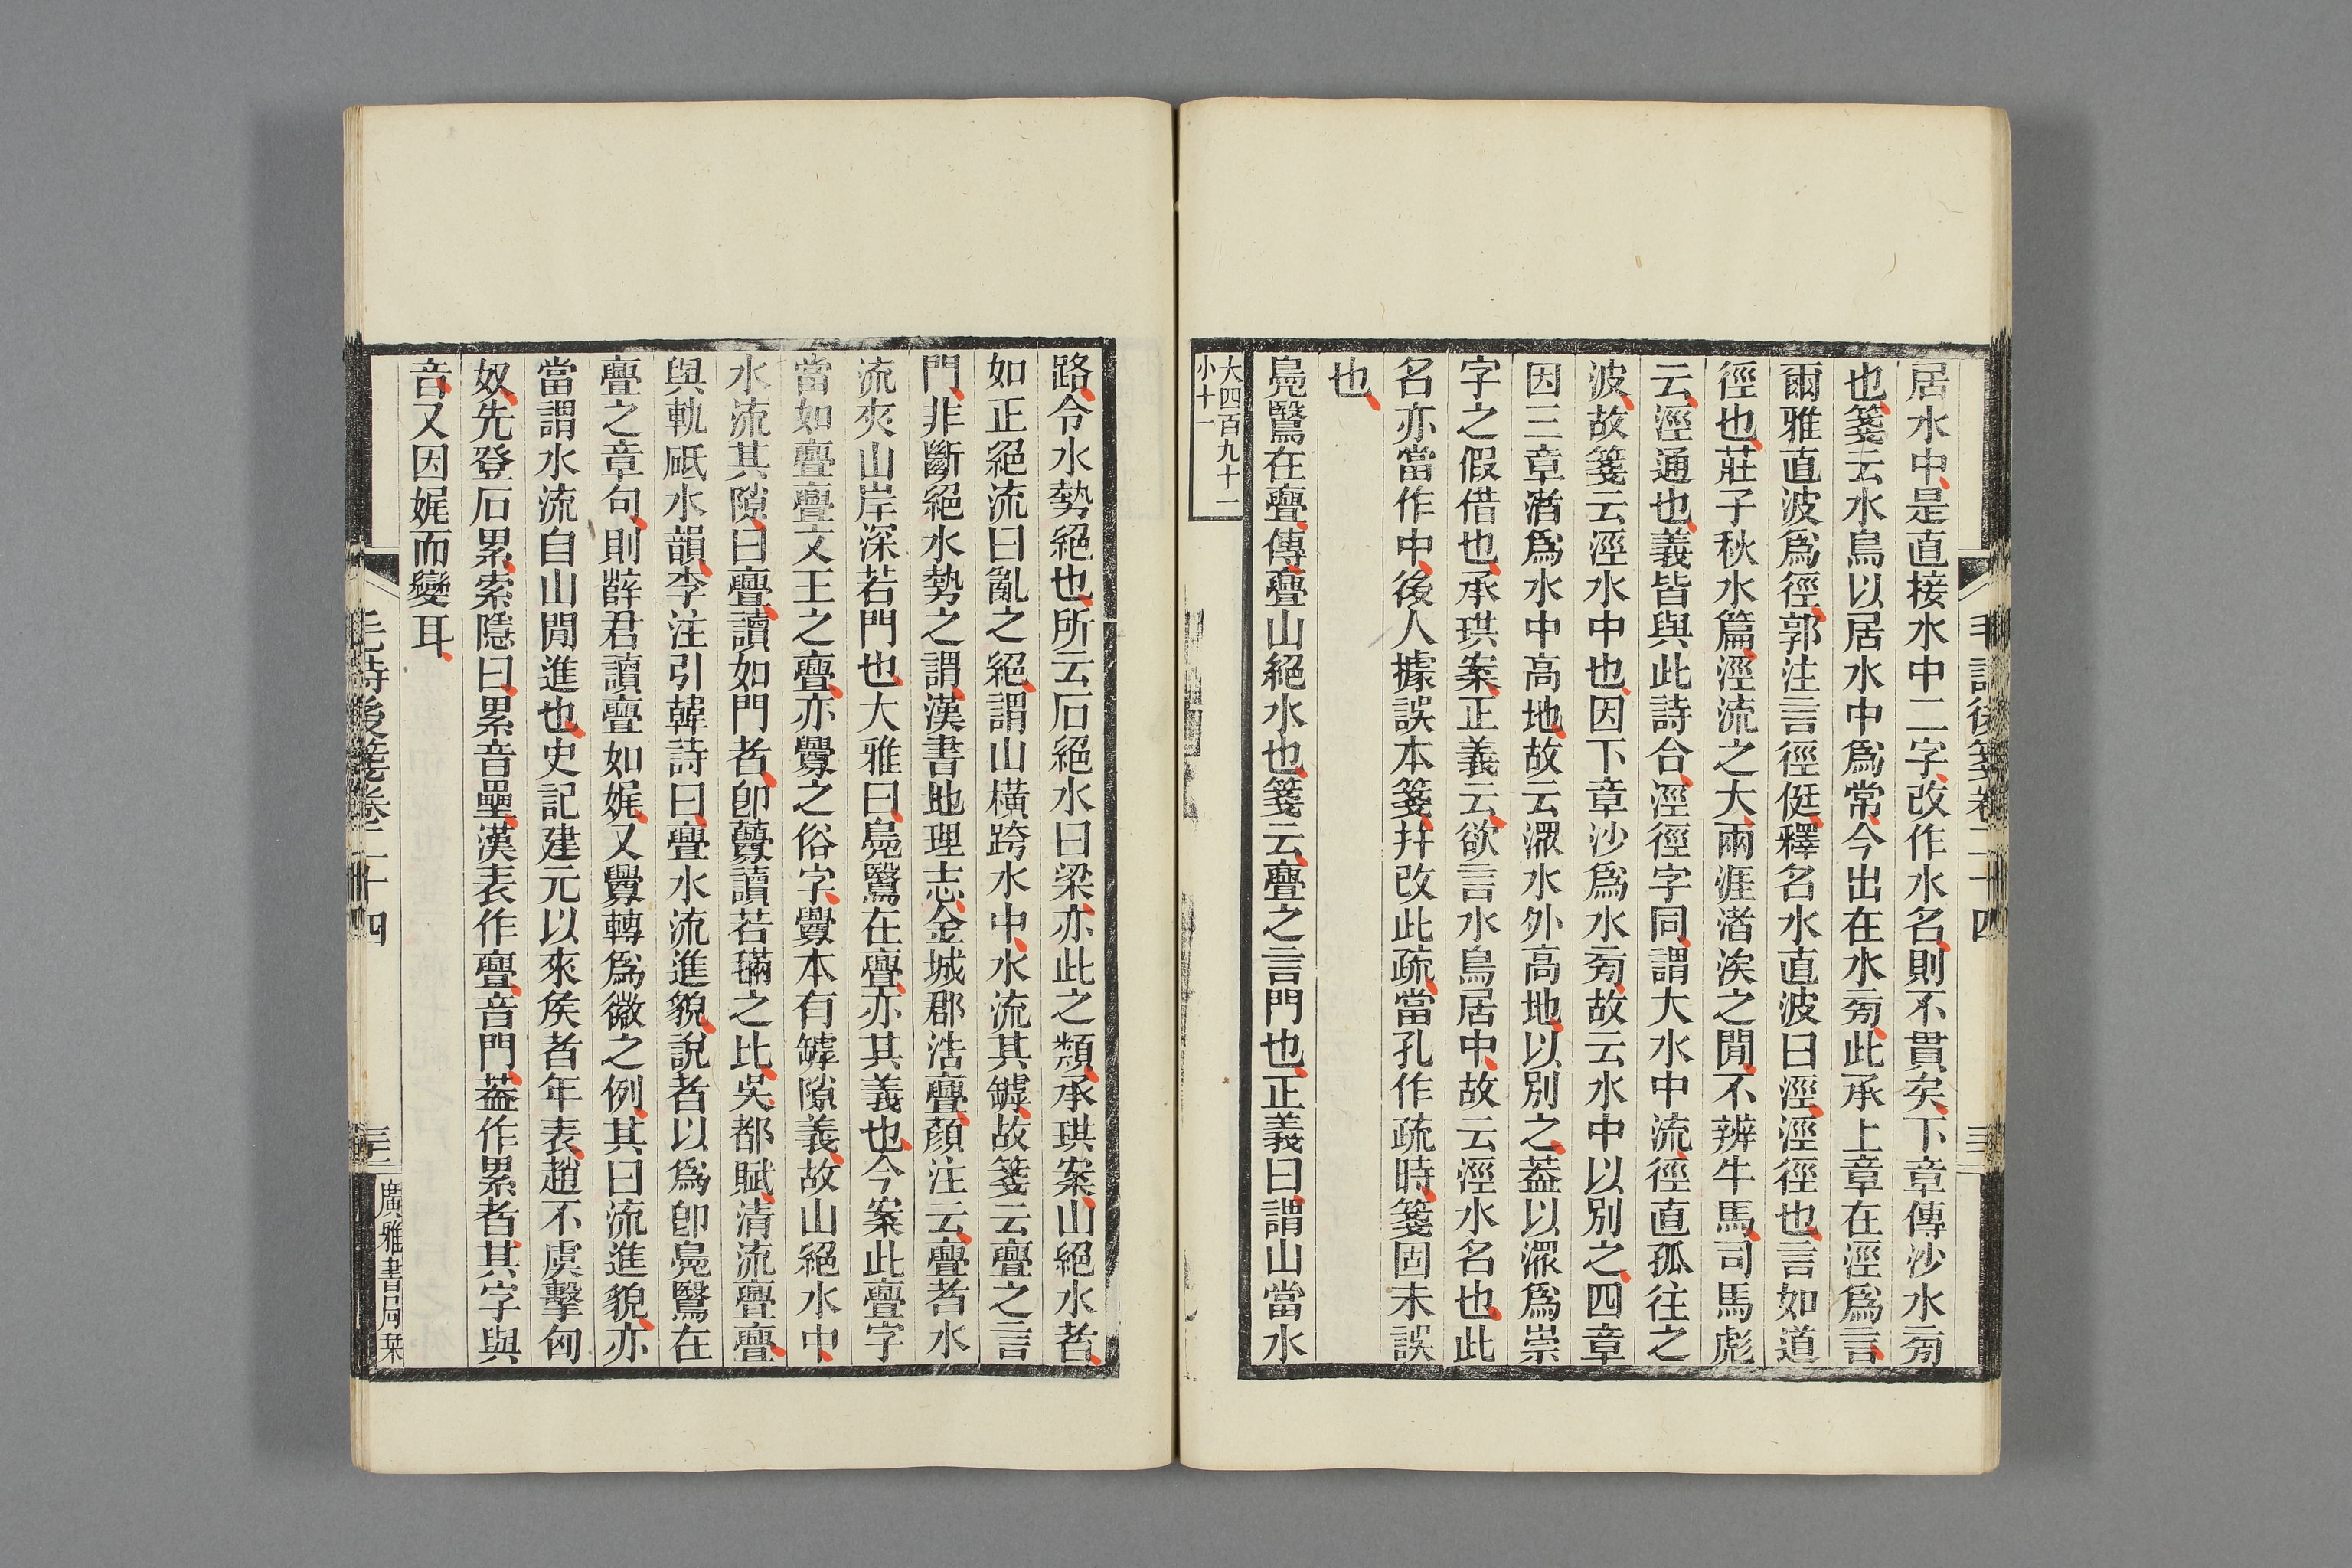 居水中是直接水中二字改作水名則不貫矣下章傳沙水㫄
也箋云水鳥以居水中爲常今出在水㫄此承上章在涇爲言
爾雅直波爲徑郭注言徑侹釋名水直波曰涇涇徑也言如道
徑也莊子秋水篇涇流之大兩涯渚涘之閒不辨牛馬司馬彪
云涇通也義皆與此詩合涇徑字同謂大水中流徑直孤往之
波故箋云涇水中也因下章沙爲水㫄故云水中以別之四章
因三章渚爲水中高地故云潀水外高地以別之葢以潀爲崇
字之假借也承珙案正義云欲言水鳥居中故云涇水名也此
名亦當作中後人據誤本箋幷改此疏當孔作疏時箋固未誤
也
鳧鷖在亹傳亹山絕水也箋云亹之言門也正義曰謂山當水
大四百九十二
小十一
路令水勢絕也所云石絕水曰梁亦此之類承珙案山絕水者
如正絕流曰亂之絕謂山橫跨水中水流其罅故箋云亹之言
門非斷絕水勢之謂漢書地理志金城郡浩亹顏注云亹者水
流夾山岸深若門也大雅曰鳧鷖在亹亦其義也今案此亹字
當如亹亹文王之亹亦釁之俗字釁本有罅隙義故山絕水中
水流其隙曰亹讀如門者卽虋讀若璊之比吳都賦淸流亹亹
與軌砥水韻李注引韓詩曰亹水流進貌說者以爲卽鳧鷖在
亹之章句則薛君讀亹如娓又釁轉爲微之例其曰流進貌亦
當謂水流自山閒進也史記建元以來矦者年表趙不虞擊匈
奴先登石累索隱曰累音壘漢表作亹音門葢作累者其字與
音又因娓而變耳
毛詩後箋卷二十四
廣雅書局栞